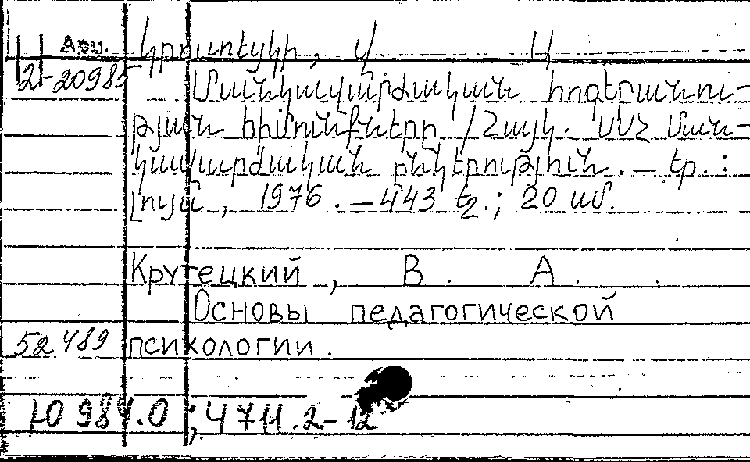 Арм. Կրուտեցկի, Վ Ա
2-20985 Մանկավարժական հոգեբանու-
թյան հիմունքները / Հայկ. ՍՍՀ Ման-
կավարժական ընկերություն. – Եր.:
Լույս, 1976. – 443 էջ.; 20 սմ.
Крутецкий, В. А.
Основы педагогической
52489 психологии.
Ю 984.0; 4711.2-12